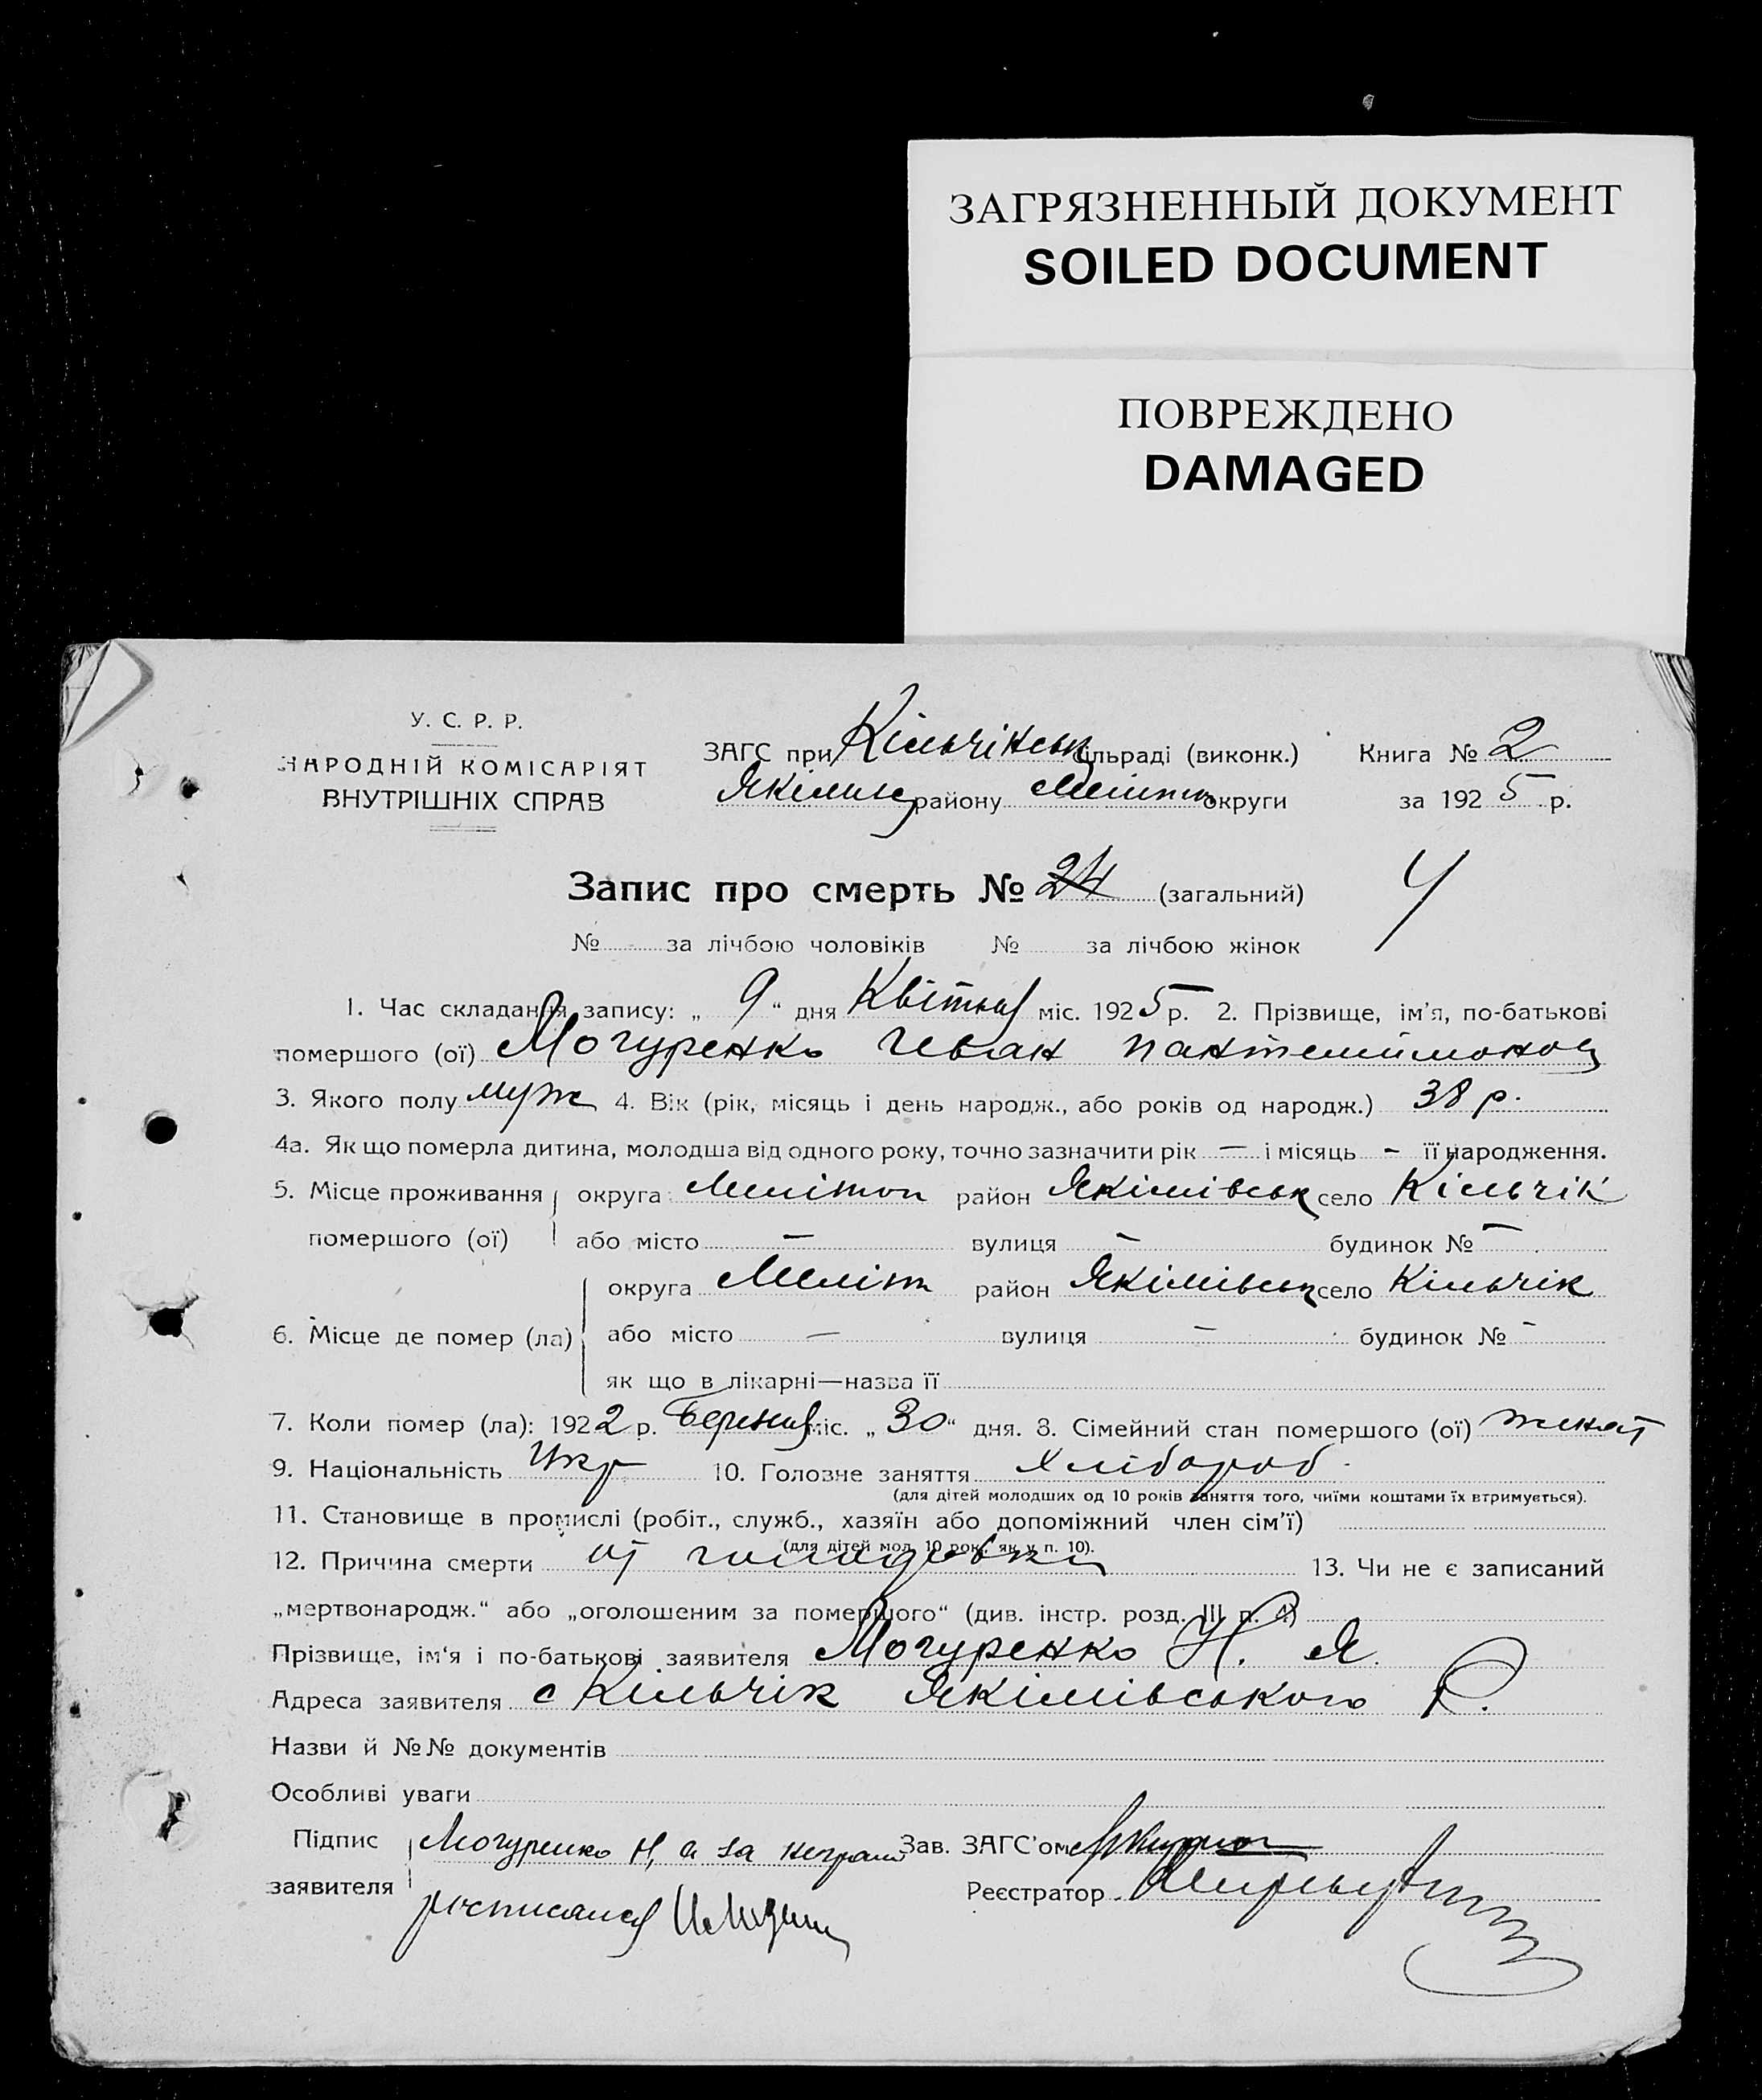 ЗАГРЯЗНЕННЫЙ ДОКУМЕНТ
SOILED DOCUMENT
ПОВРЕЖДЕНО
DAMAGED
У. С. Р. Р.
НАРОДНІЙ КОМІСАРІЯТ
ВНУТРІШНІХ СПРАВ
ЗАГС при Кільчікськ сільраді (виконк.) Книга № 2
Якімів району Меліт округи за 1925 р.
Запис про смерть № 24 (загальний) 4
№ за лічбою чоловіків № за лічбою жінок
1. Час складання запису: „ 9 “ дня Квітня міс. 1925 р. 2. Прізвище, ім'я, по-батькові
помершого (ої) Могуренко Іван
3. Якого полу муж 4. Вік (рік, місяць і день народж., або років од народж.) 38 р.
4а. Як що померла дитина, молодша від одного року, точно зазначити рік — і місяць - її народження.
5. Місце проживання округа Мелітоп район Якімівськ село Кільчік
помершого (ої) або місто — вулиця — будинок № —
округа Меліт район Якімівськ село Кільчік
6. Місце де помер (ла) або місто — вулиця — будинок № -
як що в лікарні—назва її
7. Коли помер (ла): 1922 р. Березня міс. „ 30 “ дня. 8. Сімейний стан помершого (ої) женат
9. Національність Укр 10. Головне заняття Хлібороб
(для дітей молодших од 10 років заняття того, чиїми коштами їх втримується).
11. Становище в промислі (робіт., служб., хазяїн або допоміжний член сім'ї)
(для дітей мол. 10 рок. як у п. 10).
12. Причина смерти от голодовки 13. Чи не є записаний
„мертвонародж.“ або „оголошеним за помершого“ (див. інстр. розд. III п. 4)
Прізвище, ім'я і по-батькові заявителя Могуренко Н. Я.
Адреса заявителя с Кільчік Якімівського Р.
Назви й №№ документів
Особливі уваги
Підпис Могуренко Н, а за неграм Зав. ЗАГС'ом
заявителя росписался Реєстратор